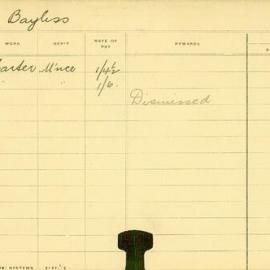 Bayliss
WORK DEP'T RATE OF PAY REMARKS
Carter M'nce 1/4½
" " 1/6.
Dismissed